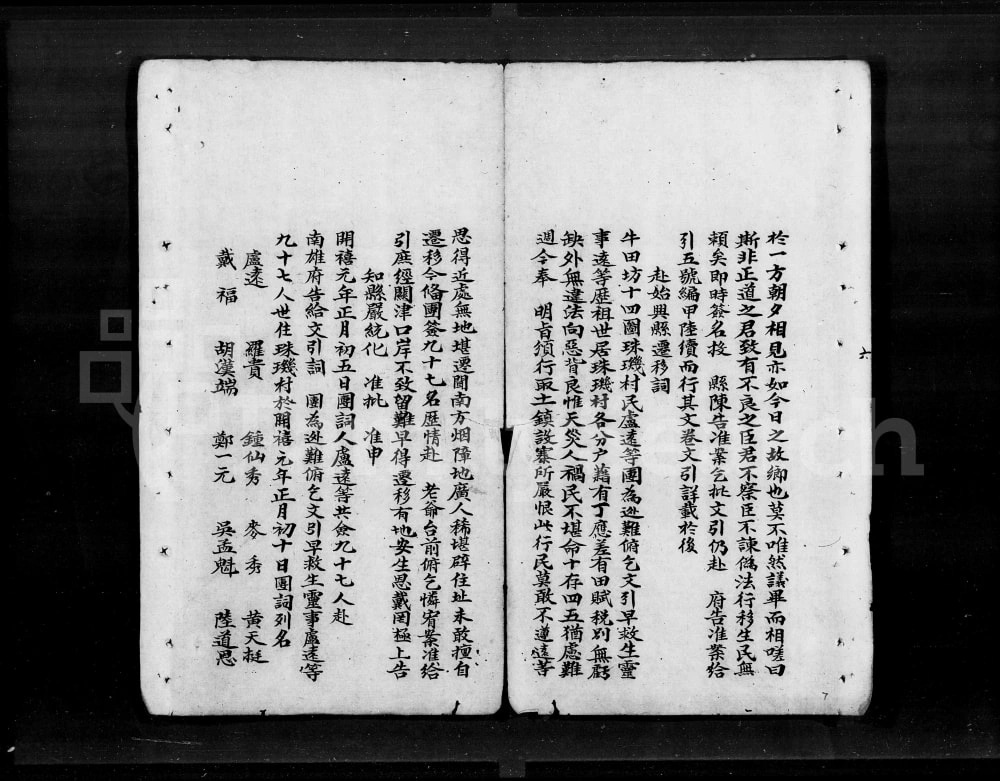 於一方朝夕相見亦如今日之故鄉也莫不唯然議畢而相嗟曰
斯非正道之君致有不良之臣君不察臣不諫僞法行移生民無
賴矣即時簽名投 縣陳告准案乞批文引仍赴 府告准案給
引五號編甲陸續而行其文卷文引詳載於後
赴始興縣遷移詞
牛田坊十四圖珠璣村民盧遠等團為逃難俯乞文引早救生靈
事遠等歷祖世居珠璣村各分户籍有丁應差有田賦稅别無虧
缺外無違法向惡背良惟天災人禍民不堪命十存四五猶慮難
週今奉 明旨頒行取土鎮設寨所嚴恨此行民莫敢不遵遠等
思得近處無地堪遷聞南方烟障地廣人稀堪辟住址未敢擅自
遷移今俻團簽九十七名歷情赴 老爺台前俯乞憐宥案准給
引庶經關津口岸不致留難早得遷移有地安生思戴罔極上告
知縣嚴統化 准批 准申
開禧元年正月初五日團詞人盧遠等共僉九十七人赴
南雄府告給文引詞 團為逃難俯乞文引早救生靈事盧遠等
九十七人世住珠璣村於開禧元年正月初十日團詞列名
盧遠 羅貴 鍾仙秀 麥秀 黄天挺
戴福 胡漢端 鄭一元 吳孟魁 陸道思
六